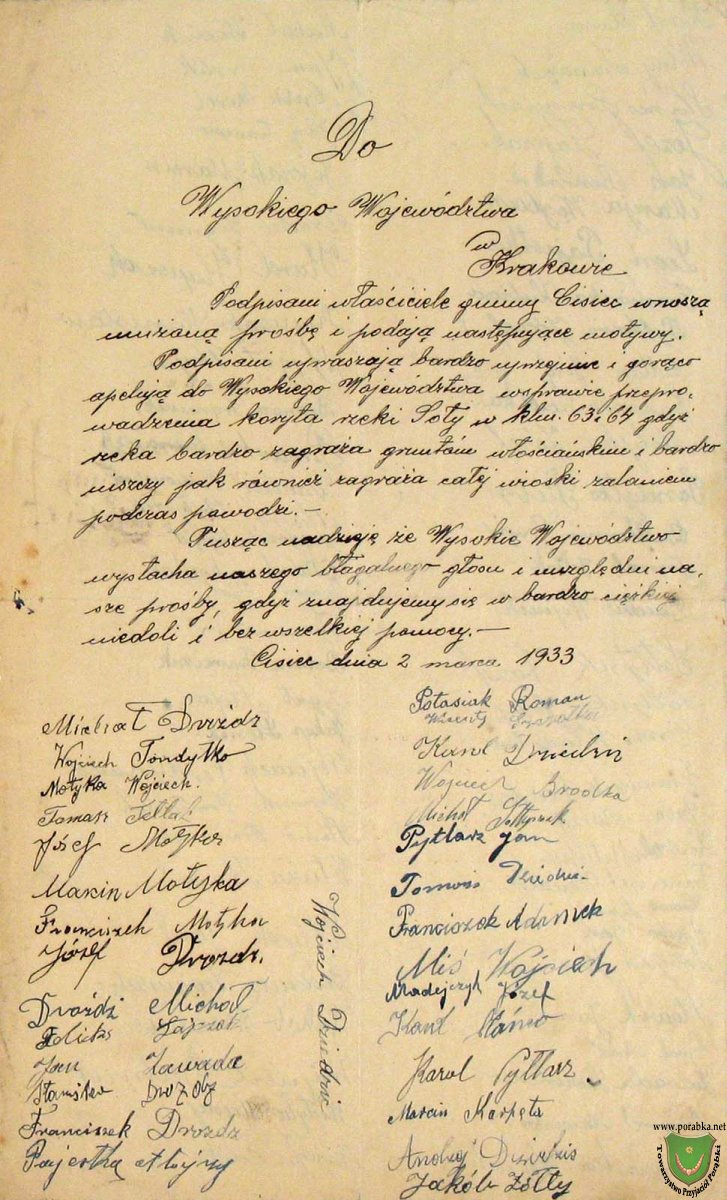 Do
Wysokiego Województwa
w
Krakowie
Podpisani właściciele gminy Cisiec wnoszą
uniżoną prośbę i podają następujące motywy.
Podpisani upraszają bardzo uprzejmie i gorąco
apelują do Wysokiego Województwa wsprawie przepro-
wadzenia koryta rzeki Soły w klm. 63 i 64 gdyż
rzeka bardzo zagraża gruntom włościańskim i bardzo
niszczy jak również zagraża całej wioski zalaniem
podczas powodzi.—
Tusząc nadzieję że Wysokie Województwo
wysłucha naszego błagalnego głosu i uwzględni na-
sze prośby, gdyż znajdujemy się w bardzo ciężkiej
niedoli i bez wszelkiej pomocy.—
Cisiec dnia 2 marca 1933
Michał Drożdż
Wojciech Tondytko
Motyka Wojciech.
Tomasz
Józef Motyka
Marcin Motyka
Franciszek Motyka
Józef Drozdz.
Drożdż Michał
Zawada
Stanisław
Franciszek Drozdz
Wojciech Dziedzic
Potasiak Roman
Karol
Wojciech
Michał
Pytlarz Jan
Tomasz
Franciszek
Miś Wojciech
Madejczyk Józef
Karol
Karol Pytlarz
Marcin Karpęta
Andrzej
Jakób Żółty
www.porabka.net
Towarzystwo Przyjaciół Porąbki